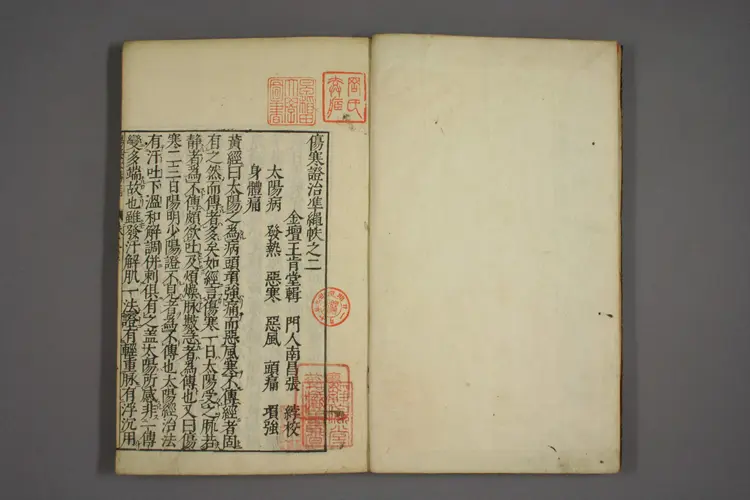 傷寒證治準繩帙之二
金壇王肯堂輯 門人南昌張 綍校
太陽病 發熱 惡寒 惡風 頭痛 項強
身體痛
黃經曰太陽之為病頭項強痛而惡風寒不傳經者固
有之然而傳者多矣如經言傷寒一日太陽受之脈若
靜者為不傳頗欲吐及煩燥脈數急者為傳也又曰傷
寒二三日陽明少陽證不見者為不傳也太陽經治法
有汗吐下溫和解調併刺俱有之蓋太陽所感非一傳
變多端故也雖發汗解肌一法證有輕重脈有浮沉用